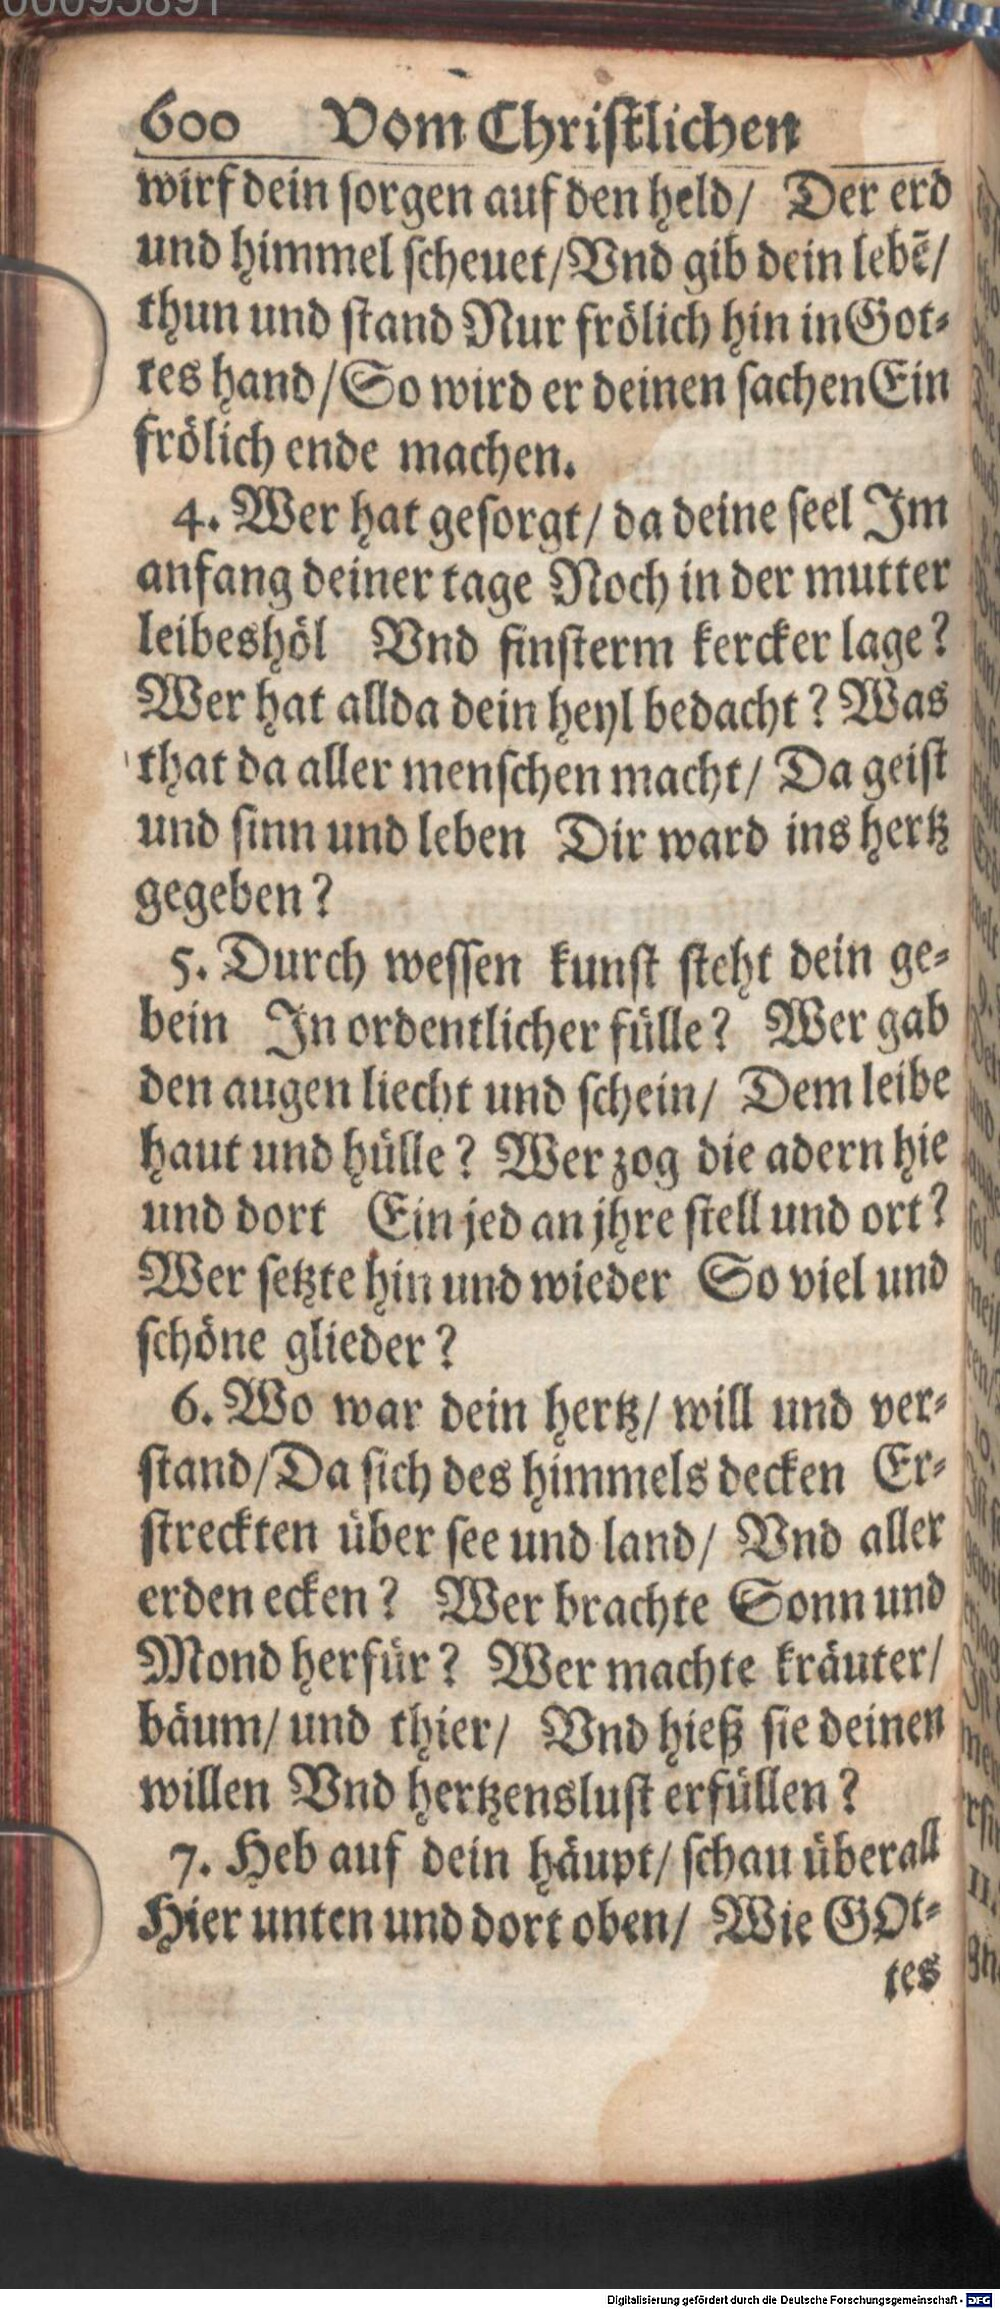 00095891
600 Vom Christlichen
wirf dein sorgen auf den held/ Der erd
und himmel scheuet/ Vnd gib dein lebē/
thun und stand Nur frölich hin in Got-
tes hand/ So wird er deinen sachen Ein
frölich ende machen.
4. Wer hat gesorgt/ da deine seel Im
anfang deiner tage Noch in der mutter
leibeshöl Vnd finsterm kercker lage?
Wer hat allda dein heyl bedacht? Was
that da aller menschen macht/ Da geist
und sinn und leben Dir ward ins hertz
gegeben?
5. Durch wessen kunst steht dein ge-
bein In ordentlicher fülle? Wer gab
den augen liecht und schein/ Dem leibe
haut und hülle? Wer zog die adern hie
und dort Ein jed an jhre stell und ort?
Wer setzte hin und wieder So viel und
schöne glieder?
6. Wo war dein hertz/ will und ver-
stand/ Da sich des himmels decken Er-
streckten über see und land/ Vnd aller
erden ecken? Wer brachte Sonn und
Mond herfür? Wer machte kräuter/
bäum/ und thier/ Vnd hieß sie deinen
willen Vnd hertzenslust erfüllen?
7. Heb auf dein häupt/ schau überall
Hier unten und dort oben/ Wie GOt-
tes
Digitalisierung gefördert durch die Deutsche Forschungsgemeinschaft - DFG